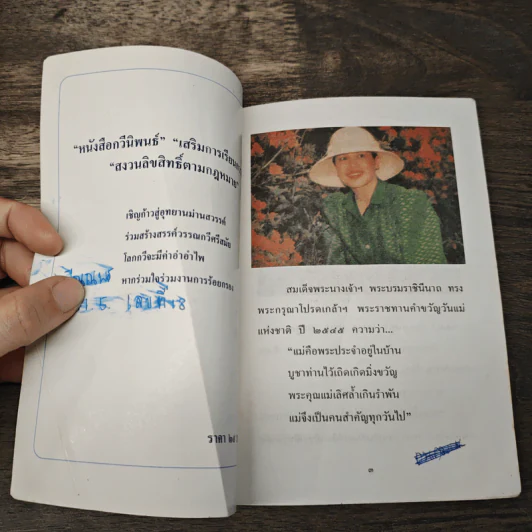 “หนังสือกวีนิพนธ์” “เสริมการเรียน
“สงวนลิขสิทธิ์ตามกฎหมาย”
เชิญก้าวสู่อุทยานม่านสวรรค์
ร่วมสร้างสรรค์วรรณกวีศรีสมัย
โลกกวีจะมีค่าอ่าอำไพ
หากร่วมใจร่วมงานการร้อยกรอง
ราคา ๒
สมเด็จพระนางเจ้าฯ พระบรมราชินีนาถ ทรง
พระกรุณาโปรดเกล้าฯ พระราชทานคำขวัญวันแม่
แห่งชาติ ปี ๒๕๔๕ ความว่า...
“แม่คือพระประจำอยู่ในบ้าน
บูชาท่านไว้เถิดเกิดมิ่งขวัญ
พระคุณแม่เลิศล้ำเกินรำพัน
แม่จึงเป็นคนสำคัญทุกวันไป”
๓